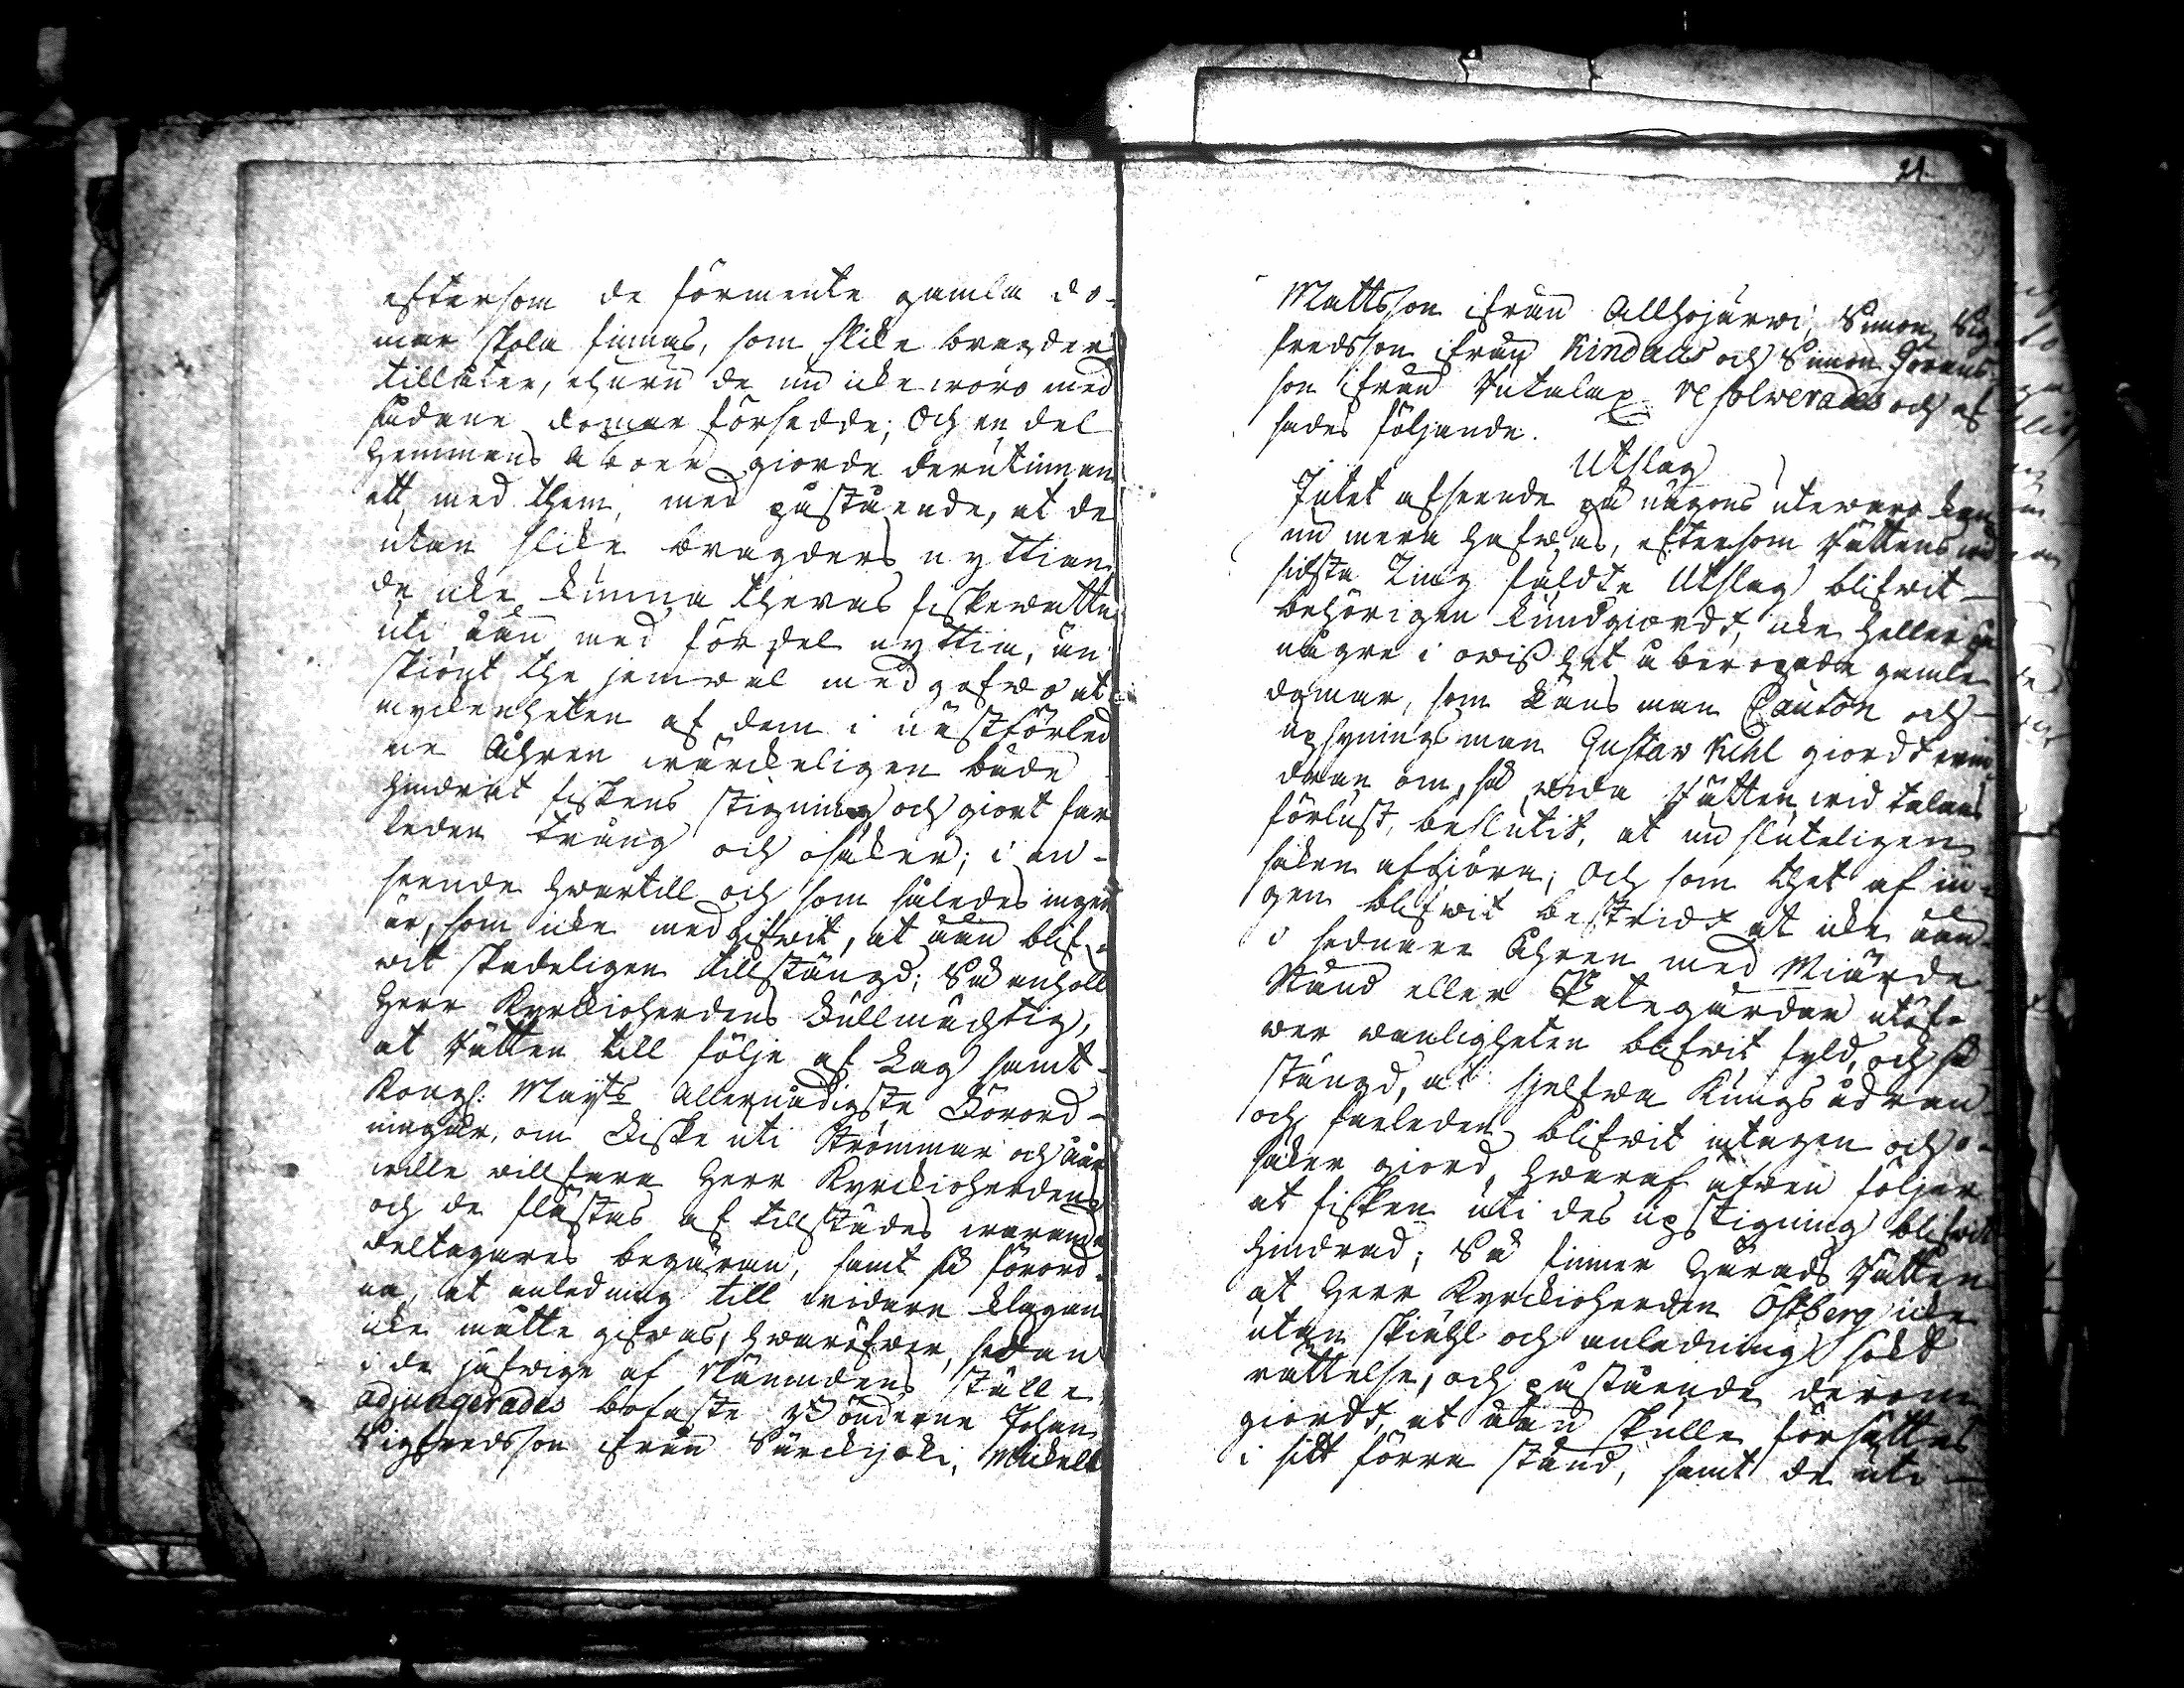 eftersom de förmente gamla do-
mar skola finnas, som slike bragder
tillåter, ehuru de nu icke woro med
sådane domar försedde; Och en del
Hemmans Åboer giorde derutinnan
ett med them, med påstående, at de
utan slike bragders nyttian
de icke kunna theras fiskerätte
uti åen med fördel nyttia, än
skiönt the jemwäl medgofwo at
myckenheten af dem i nästförled
ne Åhren wärckeligen både
hindrat fiskens stigning och giort far
leden trång och osäker; i an-
seende hwartill och som således ingen
är, som icke medgifwit, at åen blif-
wit skadeligen tillstängd; Så anholl
Herr Kyrckioherdens Fullmächtig,
at Rätten till följe af Lag samt
Kongl: Maÿts Allernådigste Förord-
ningar, om Fiske uti Strömmar och åar
wille willfara Herr Kyrckioherdens
och de flästas af tillstädes warande
deltagares begäran, samt så förord-
na, at anledning till widare klagan
icke måtte gifwas, hwaröfwer, sedan
i de jäfwige af Nämndens ställe
adjungerades bofaste Bönderne Johan
Sigfredsson ifrån Särckijoki, Mickell
21
Mattsson ifrån Allhojärwi, Simon Sig
fredsson ifrån Kindais och Simon Görans
son ifrån Rutalax resolwerades och af
sades följande.
Utslag
Intet afseende på någons utewaro kan
nu mera hafwas, eftersom Rättens wid
sidsta Ting fäldte Utslag blifwit
behörigen kundgiordt, icke heller på
någre i owisshet åberopade gamle
domar, som Länsman Canton och
upsyningsman Gustav Kihl giordt erin
dran om, så wida Rätten wid talans
förlust, beslutit, at nu sluteligen
saken afgiöra; Och som thet af in-
gen blifwit bestridt at icke åen
i sednare Åhren med Miärde
Stånd eller Katsegårdar utöf-
wer wanligheten blifwit fyld, och så
stängd, at sjelfwa Kungsådran
och farleden blifwit intagen och o-
säker giord, hwaraf äfwen följer
at fisken uti des upstigning blifwit
hindrad; Så finner Härads Rätten
at Herr Kyrckioherden Östberg icke
utan skiähl och anledning sökt
rättelse, och påstående derom
giordt, at åen skulle försättas
i sitt förra stånd, samt de uti